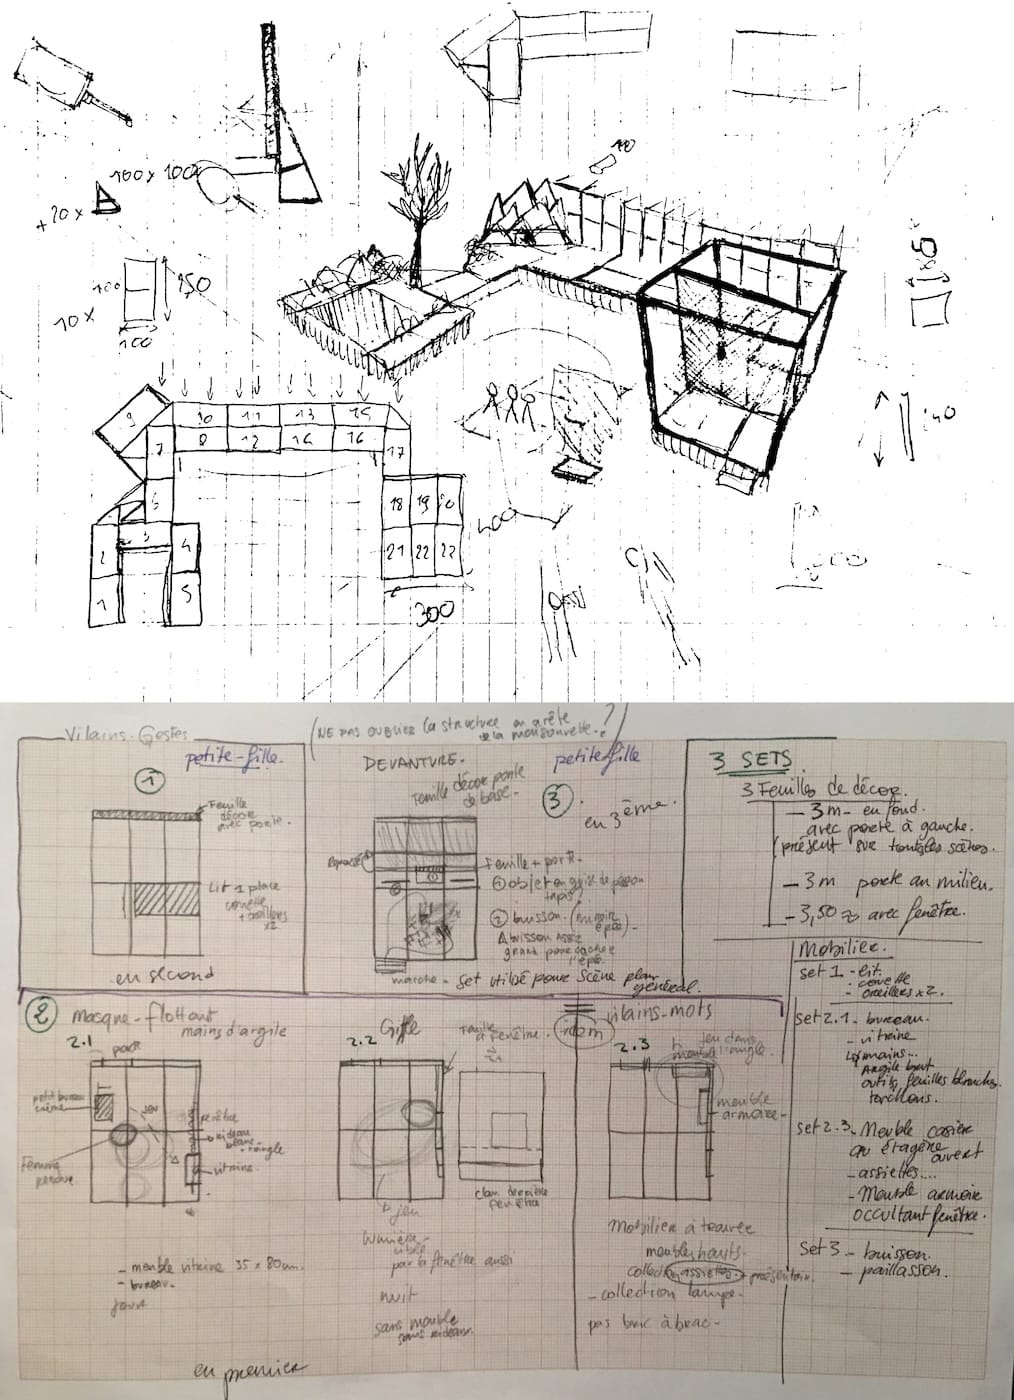 100 x 100
+ 20 x
100
150
10 x
100
40
9
10
11
13
15
8
12
14
16
7
17
6
18 19 20
3
2
4
21 22 23
1
5
300
400
Vilains-Gestes
(NE PAS OUBLIER la structure en arête
de la maisonnette.?
petite-fille.
1
Feuille
décor
avec porte.
Lit 1 place
couette
+ oreillers
x2
en second
DEVANTURE.
petite fille
Feuille décor porte
de base.
3
en 3ème.
Feuille + porte.
1 objet en guise de
tapis
2 buisson.
buisson assez
grand pour cacher
l'épée.
marche - set utilisé pour scène plan
général.
3 SETS
3 Feuilles de décor.
- 3m - en fond.
avec porte à gauche.
(présent sur toutes les scènes.
- 3m porte au milieu.
- 3,50 avec fenêtre.
Mobilier.
set 1 - lit.
- couette
- oreillers x2.
set 2.1. - bureau.
- vitrine
mains...
Argile brut
outils, feuilles blanches
torchons.
set 2.3. - Meuble casier
ou étagère
ouvert
- assiettes...
- Meuble armoire
occultant fenêtre.
set 3 - buisson.
- paillasson.
2
Masque-flottant
mains d'argile
2.1
porte
petit bureau
crème
jeu
fenêtre
rideau
blanc
+ tringle
vitrine.
Femme
- meuble vitrine 35 x 80cm.
- bureau.
jour
en premier
Gifle
2.2
Feuille
à fenêtre.
idem
jeu
derrière
fenêtre
Lumière
par la fenêtre aussi
nuit
sans meuble
sans rideaux.
vilains-mots
2.3
jeu dans
l'angle.
meuble
armoire -
Mobilier à trouver
meubles hauts.
collection assiettes. + présentoir.
- collection lampe -
pas bric à brac -